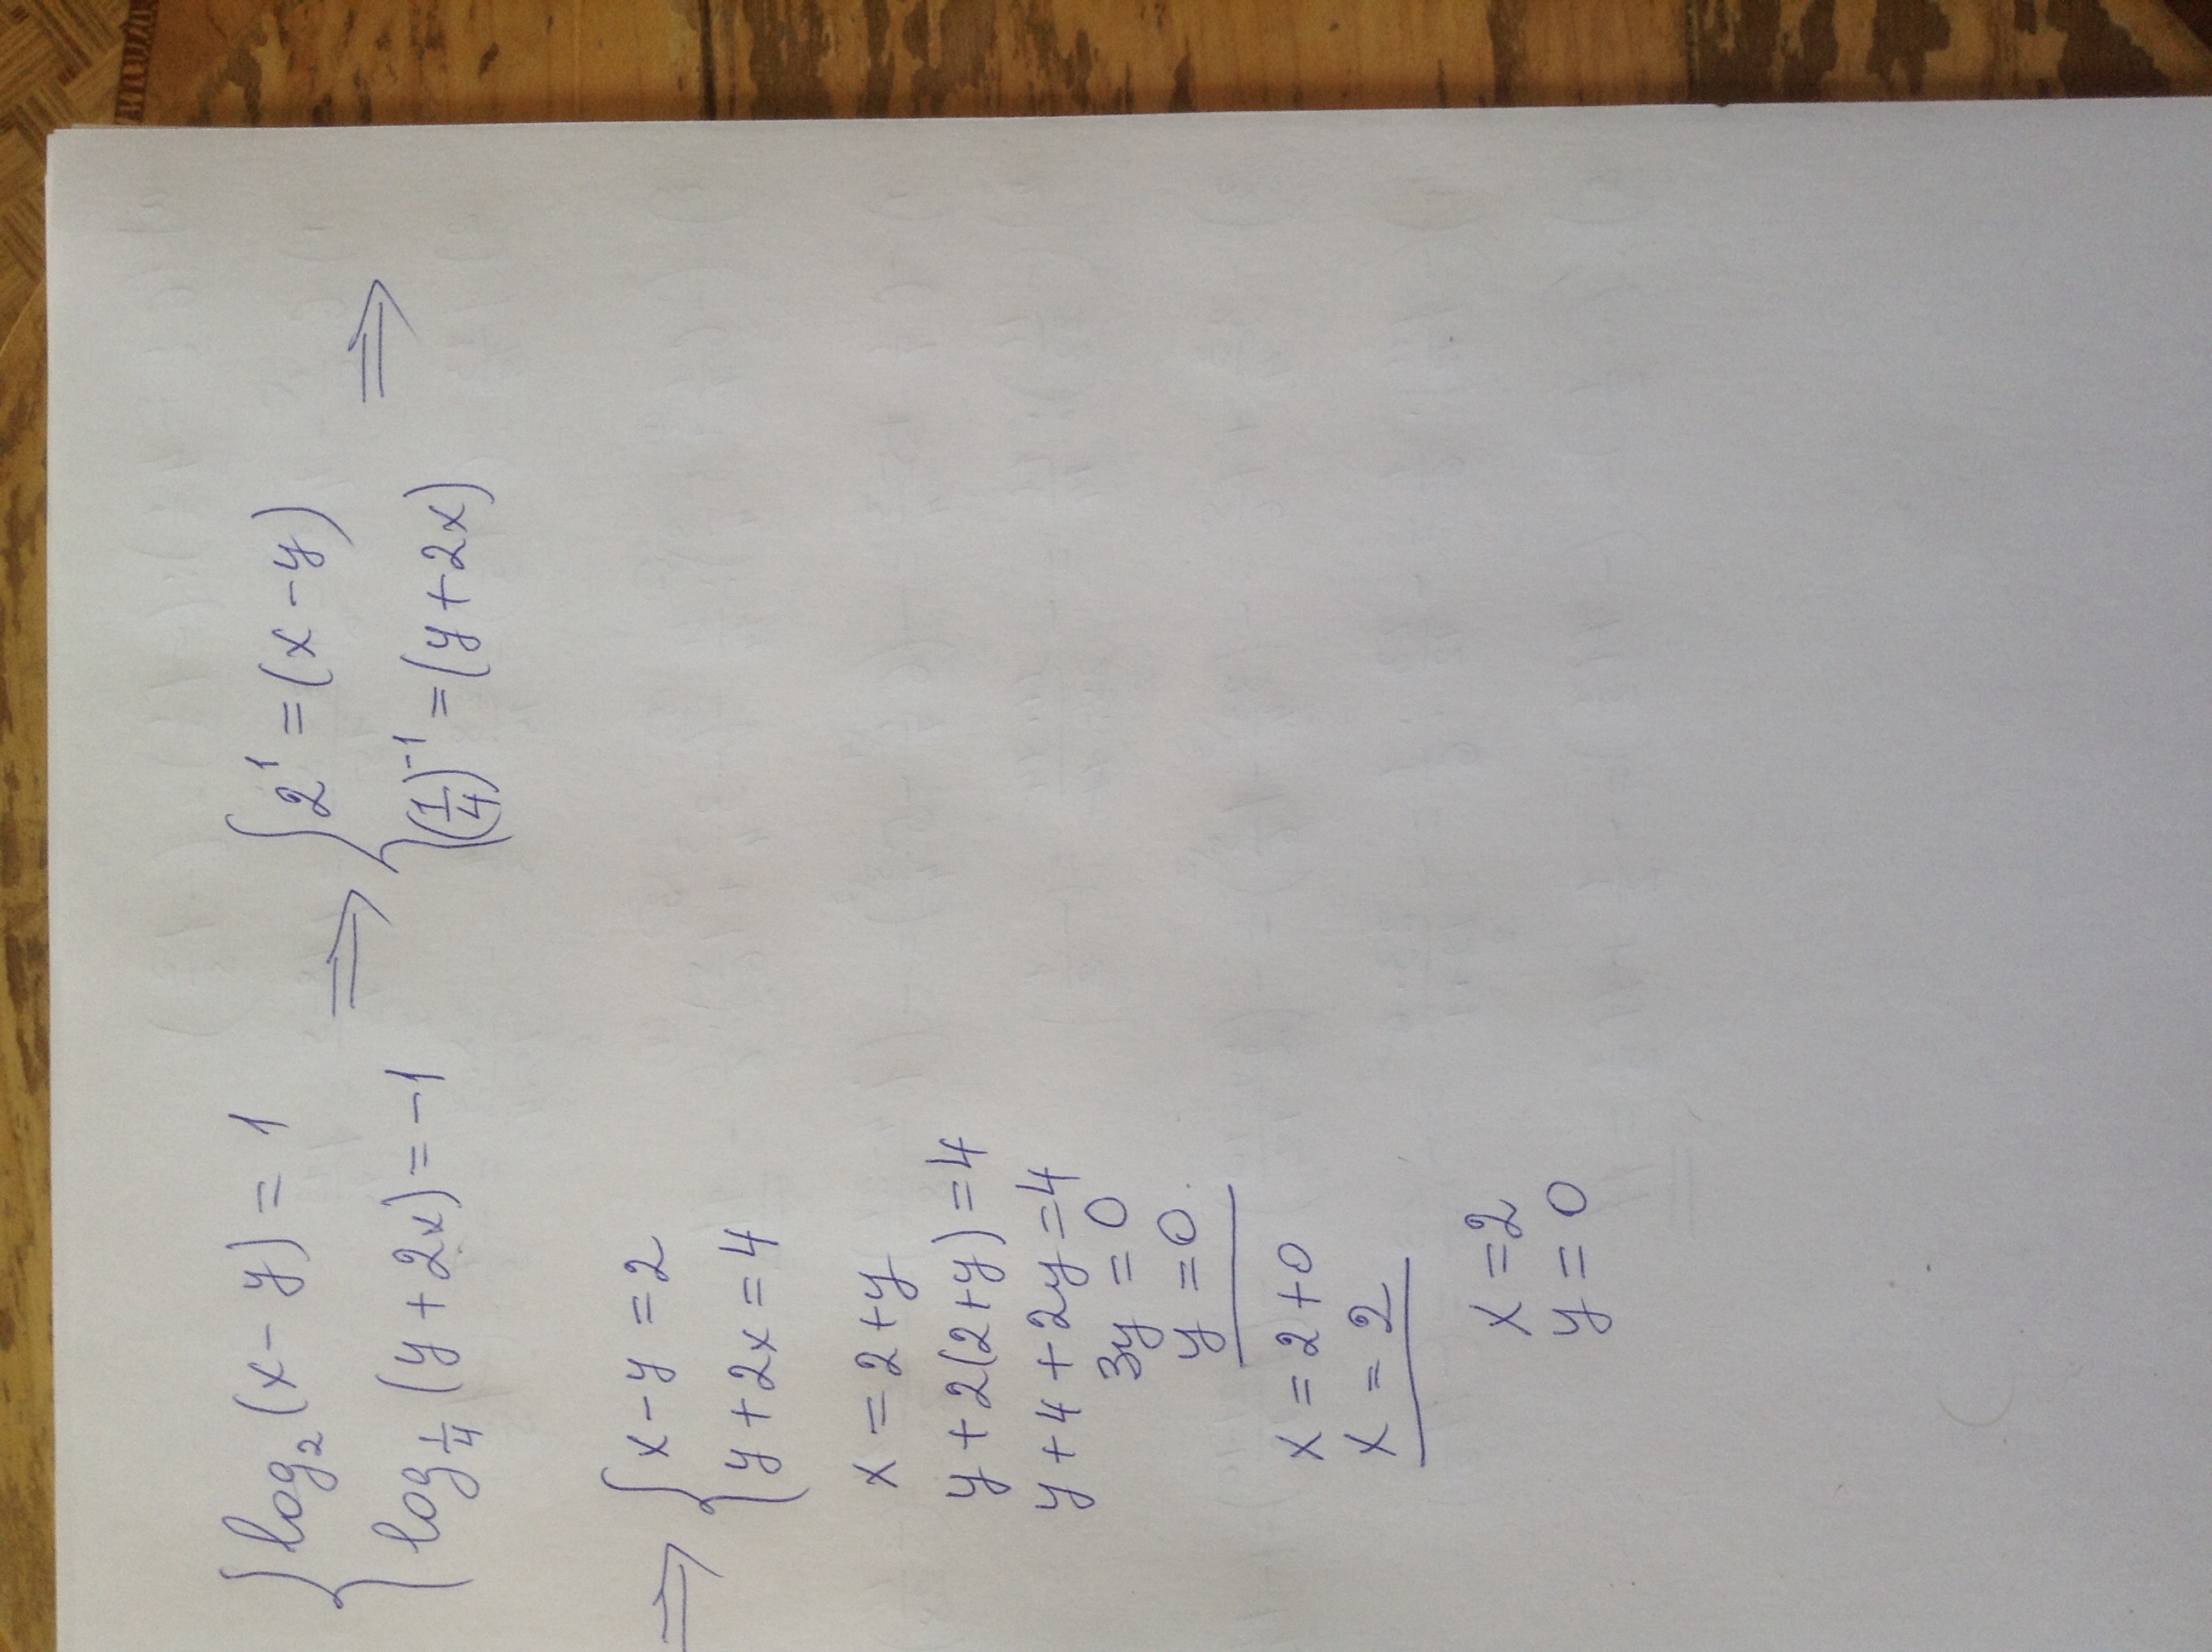 { log₂(x-y)=1 ⇒ { 2¹=(x-y)
log_{1/4}(y+2x)=-1 (1/4)⁻¹=(y+2x) ⇒
⇒ { x-y=2
y+2x=4
x=2+y
y+2(2+y)=4
y+4+2y=4
3y=0
y=0
x=2+0
x=2
x=2
y=0